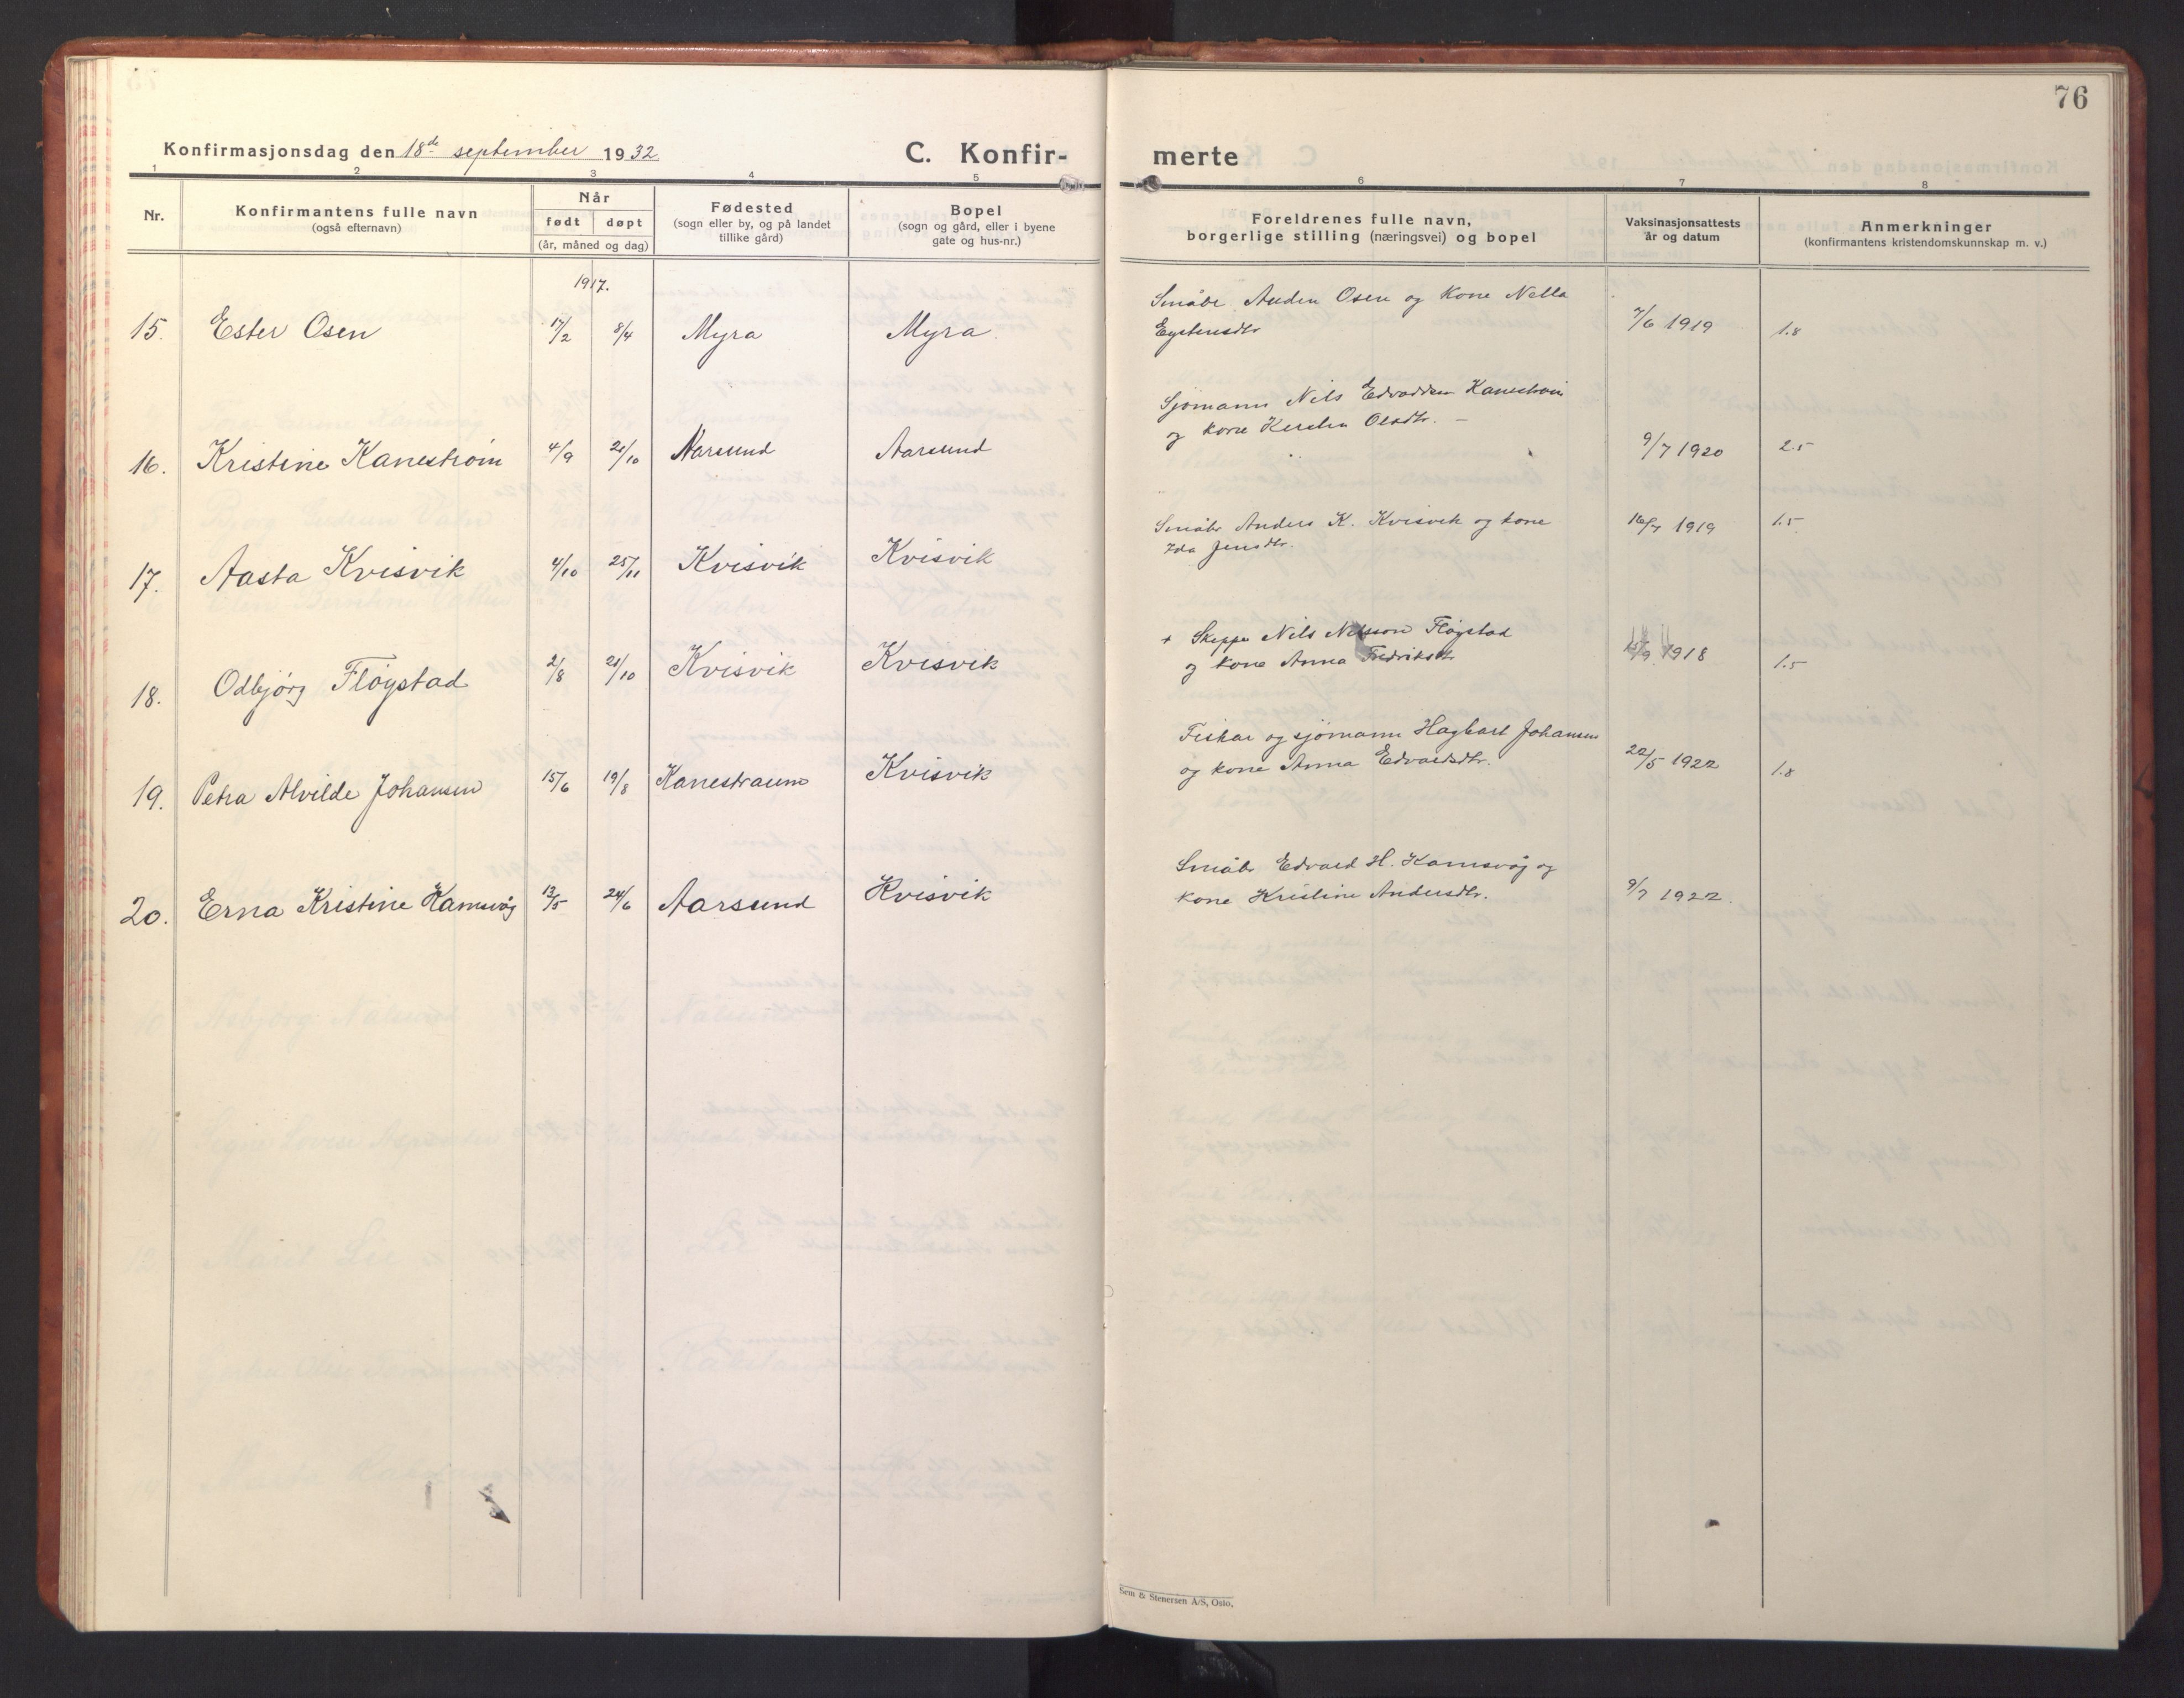 76
Konfirmasjonsdag den 18de september 1932
C. Konfir-
merte
1 2 3 4 5 6 7 8
Nr.
Konfirmantens fulle navn
(også efternavn)
Når
født døpt
(år, måned og dag)
Fødested
(sogn eller by, og på landet
tillike gård)
Bopel
(sogn og gård, eller i byene
gate og hus-nr.)
Foreldrenes fulle navn,
borgerlige stilling (næringsvei) og bopel
Vaksinasjonsattests
år og datum
Anmerkninger
(konfirmantens kristendomskunnskap m. v.)
1917.
15. Ester Osen 17/2 8/4 Myra Myra.
Småbr Anden Osen og Kone Nella
Eystensdtr
7/6 1919 1.8
16. Kristine Kanestrøm 4/9 21/10 Aarsund Aarsund
Sjømann Nils Edvardsen Kanestrøm
og kone Kersten Olsdtr. —
9/7 1920 2.5
17. Aasta Kvisvik 4/10 25/11 Kvisvik Kvisvik
Småbr Anders K. Kvisvik og kone
Ida Jensdtr.
16/7 1919 1.5
18. Odbjørg Fløystad 2/8 21/10 Kvisvik Kvisvik
+ Skipper Nils Nilsson Fløystad
og kone Anna Fredriksdtr
15/9 1918 1.5
19. Petra Alvilde Johansen 15/6 19/8 Kanestraum Kvisvik
Fiskar og sjømann Hagbart Johansen
og kone Anna Edvardsdtr.
22/5 1922 1.8
20. Erna Kristine Kamsvåg 13/5 24/6 Aarsund Kvisvik
Småbr Edvard H. Kamsvåg og
kone Kristine Andersdtr.
9/7 1922.
Sem & Stenersen A/S, Oslo.